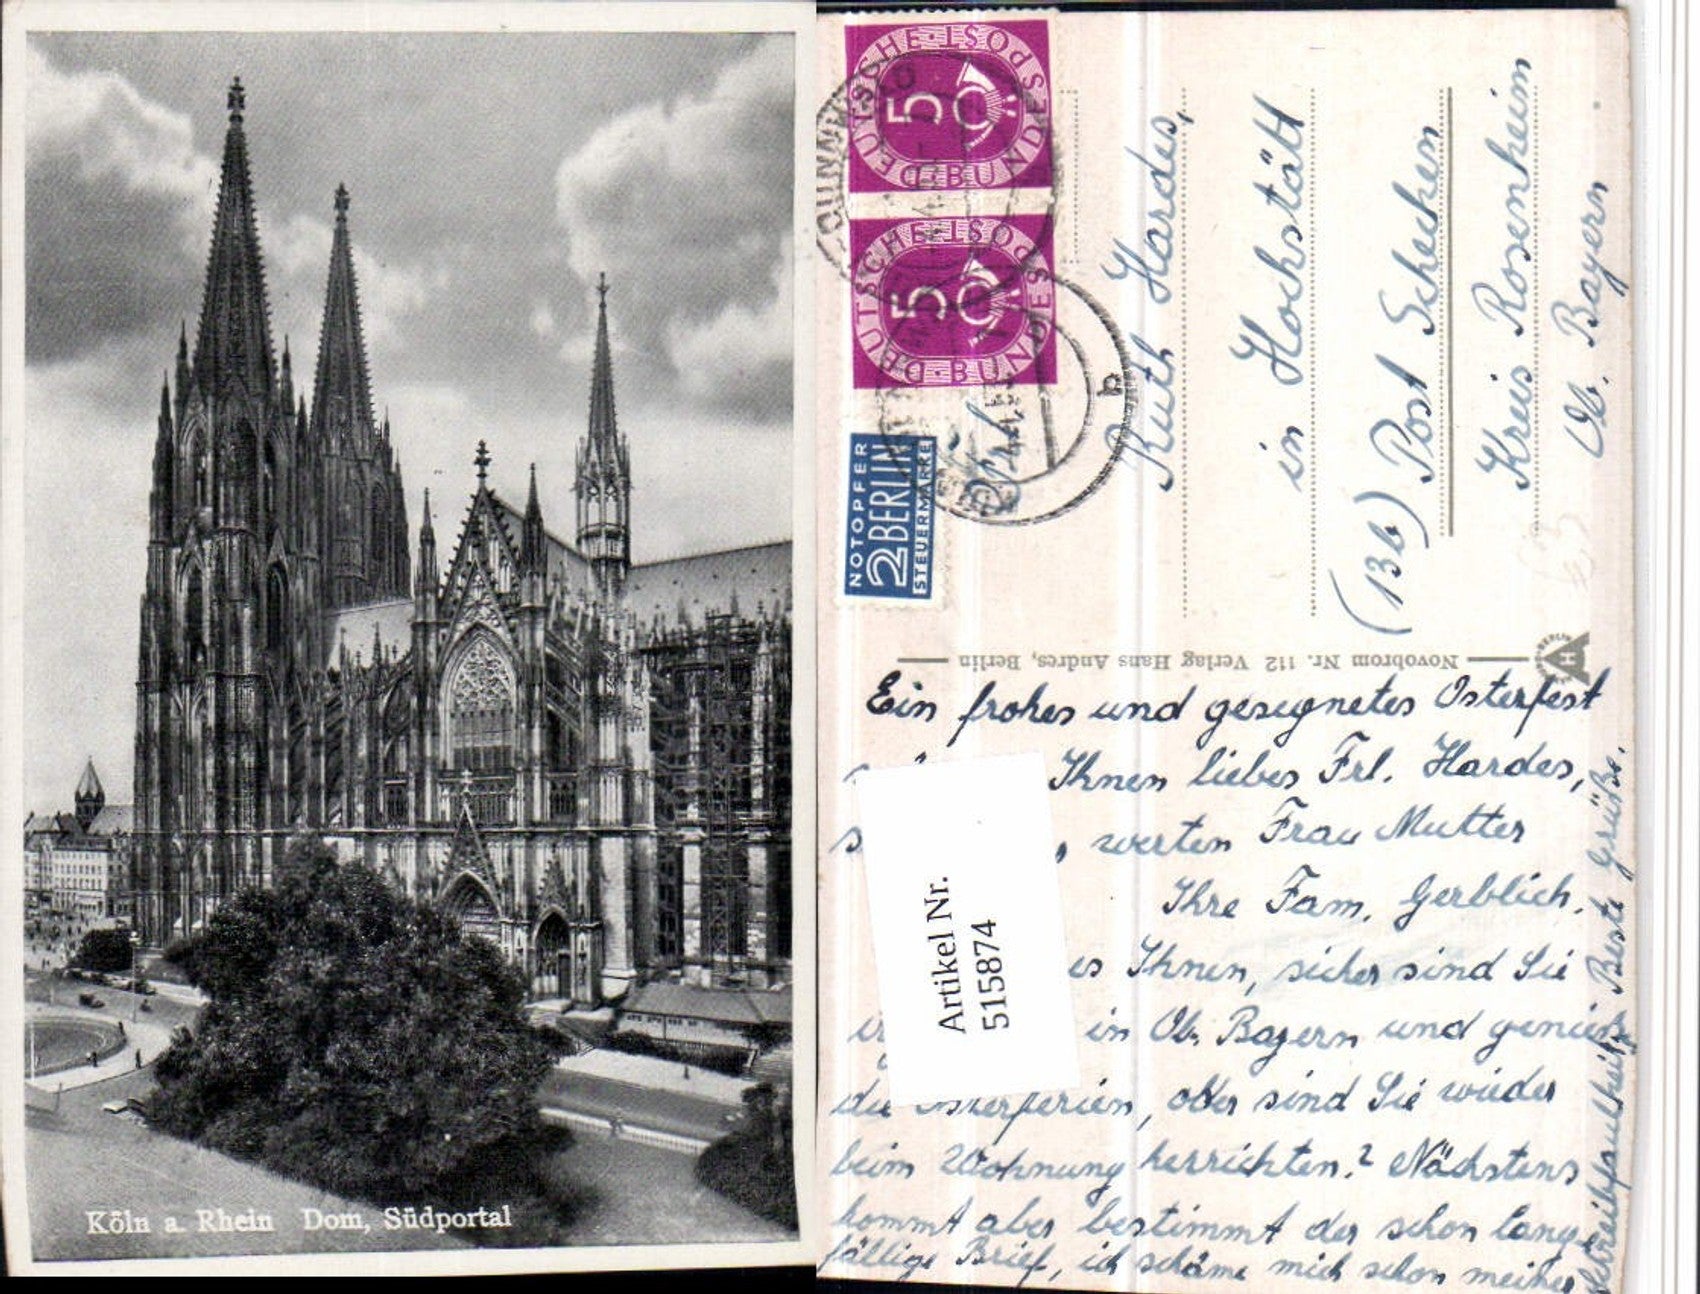 Köln a. Rhein Dom, Südportal
DEUTSCHE BUNDESPOST
5
DEUTSCHE BUNDESPOST
5
NOTOPFER
2 BERLIN
STEUERMARKE
b
Ruth Hardes,
in Hochstätt
(13b) Post Schechen
Kreis Rosenheim
Ob. Bayern
Novobrom Nr. 112 Verlag Hans Andres, Berlin
BERLIN
Ein frohes und gesegnetes Osterfest
Ihnen liebes Frl. Hardes,
, werten Frau Mutter
Ihre Fam. Gerblich.
es Ihnen, sicher sind Sie
in Ob. Bayern und genießen
die Osterferien, oder sind Sie wieder
beim Wohnung herrichten? Nächstens
kommt aber bestimmt der schon lange
fällige Brief, ich schäme mich schon meiner
Schreibfaulheit. Beste Grüße.
Artikel Nr.
515874